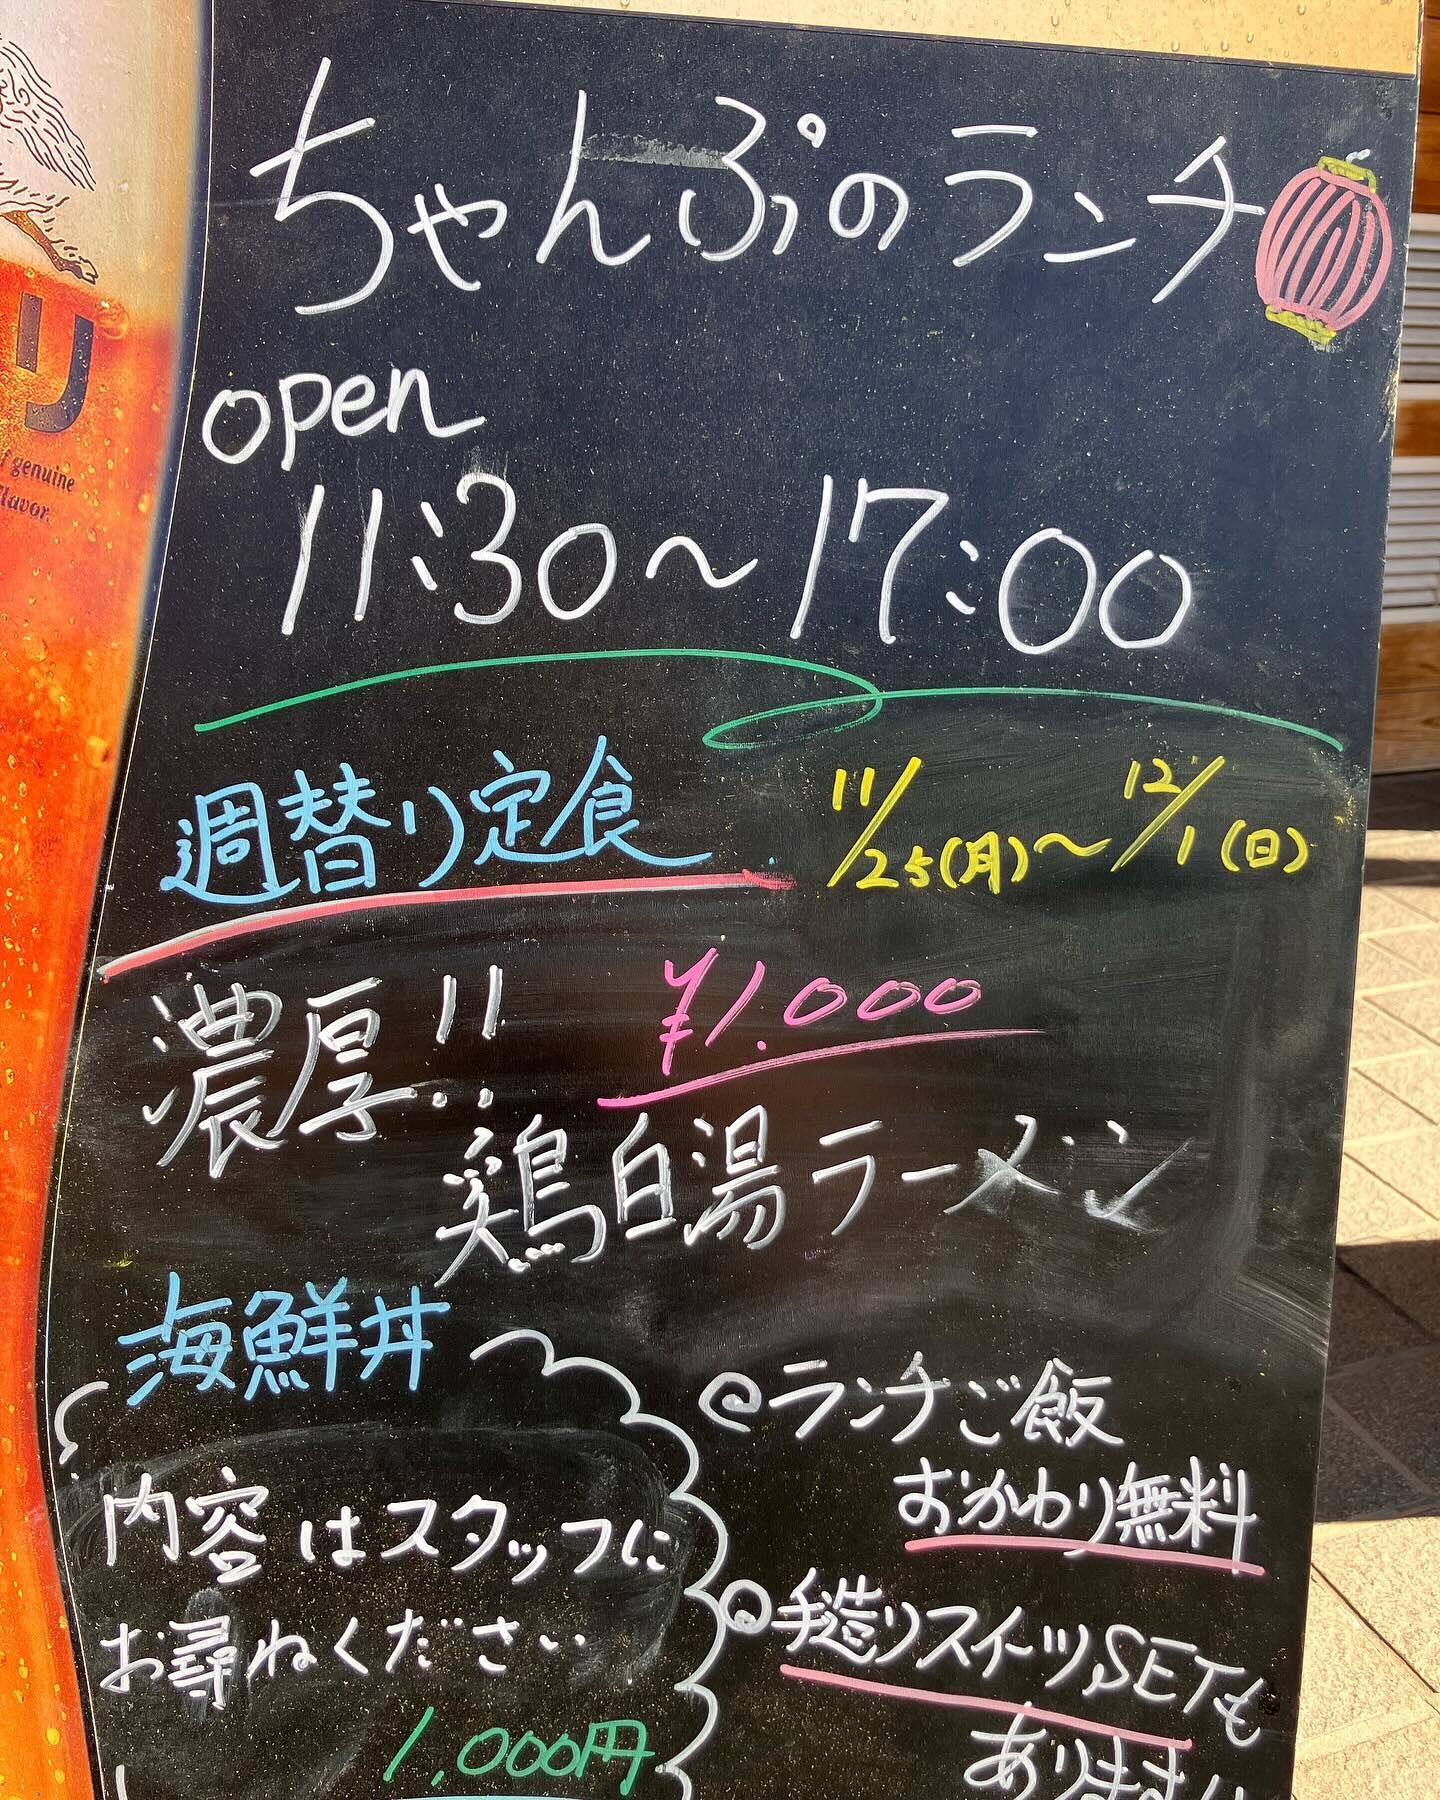 ちゃんぷのランチ
open
11:30〜17:00
週替り定食 11/25(月)〜12/1(日)
濃厚!! ¥1.000
鶏白湯ラーメン
海鮮丼
内容はスタッフに
お尋ねください
1,000円
ランチご飯
おかわり無料
手造りスイーツSETも
あります!!
リ
of genuine
flavor.